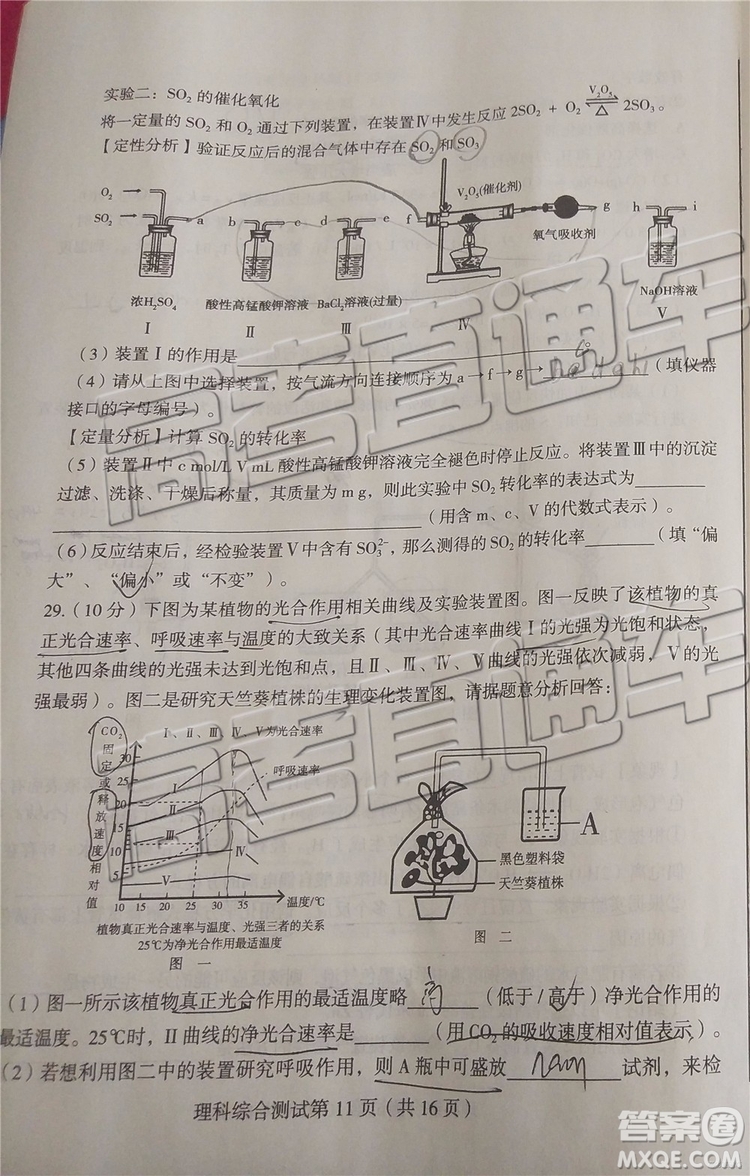 实验二：SO₂ 的催化氧化
将一定量的 SO₂ 和 O₂ 通过下列装置，在装置Ⅳ中发生反应 2SO₂ + O₂ ⇌ 2SO₃。
V₂O₅
△
【定性分析】验证反应后的混合气体中存在 SO₂ 和 SO₃
O₂
SO₂
a b c d e f g h i
V₂O₅(催化剂)
氧气吸收剂
浓H₂SO₄ 酸性高锰酸钾溶液 BaCl₂溶液(过量) NaOH溶液
Ⅰ Ⅱ Ⅲ Ⅳ Ⅴ
（3）装置Ⅰ的作用是
（4）请从上图中选择装置，按气流方向连接顺序为 a→f→g→ （填仪器
接口的字母编号）。
【定量分析】计算 SO₂ 的转化率
（5）装置Ⅱ中 c mol/L V mL 酸性高锰酸钾溶液完全褪色时停止反应。将装置Ⅲ中的沉淀
过滤、洗涤、干燥后称量，其质量为 m g，则此实验中 SO₂ 转化率的表达式为
（用含 m、c、V 的代数式表示）。
（6）反应结束后，经检验装置Ⅴ中含有 SO₃²⁻，那么测得的 SO₂ 的转化率 （填“偏
大”、“偏小”或“不变”）。
29.（10 分）下图为某植物的光合作用相关曲线及实验装置图。图一反映了该植物的真
正光合速率、呼吸速率与温度的大致关系（其中光合速率曲线Ⅰ的光强为光饱和状态，
其他四条曲线的光强未达到光饱和点，且Ⅱ、Ⅲ、Ⅳ、Ⅴ的光强依次减弱，Ⅴ的光
强最弱）。图二是研究天竺葵植株的生理变化装置图，请据题意分析回答：
CO₂固定或释放速度相对值
Ⅰ、Ⅱ、Ⅲ、Ⅳ、Ⅴ为光合速率
呼吸速率
30
25
20
15
10
5
Ⅰ
Ⅱ
Ⅲ
Ⅳ
Ⅴ
10 15 20 25 30 35 温度/℃
植物真正光合速率与温度、光强三者的关系
25℃为净光合作用最适温度
图 一
A
黑色塑料袋
天竺葵植株
图 二
（1）图一所示该植物真正光合作用的最适温度略 高 （低于/高于）净光合作用的
最适温度。25℃时，Ⅱ曲线的净光合速率是 （用CO₂的吸收速度相对值表示）。
（2）若想利用图二中的装置研究呼吸作用，则 A 瓶中可盛放 试剂，来检
理科综合测试第 11 页（共 16 页）
高考直通车
高考直通车
答案圈
MXQE.COM